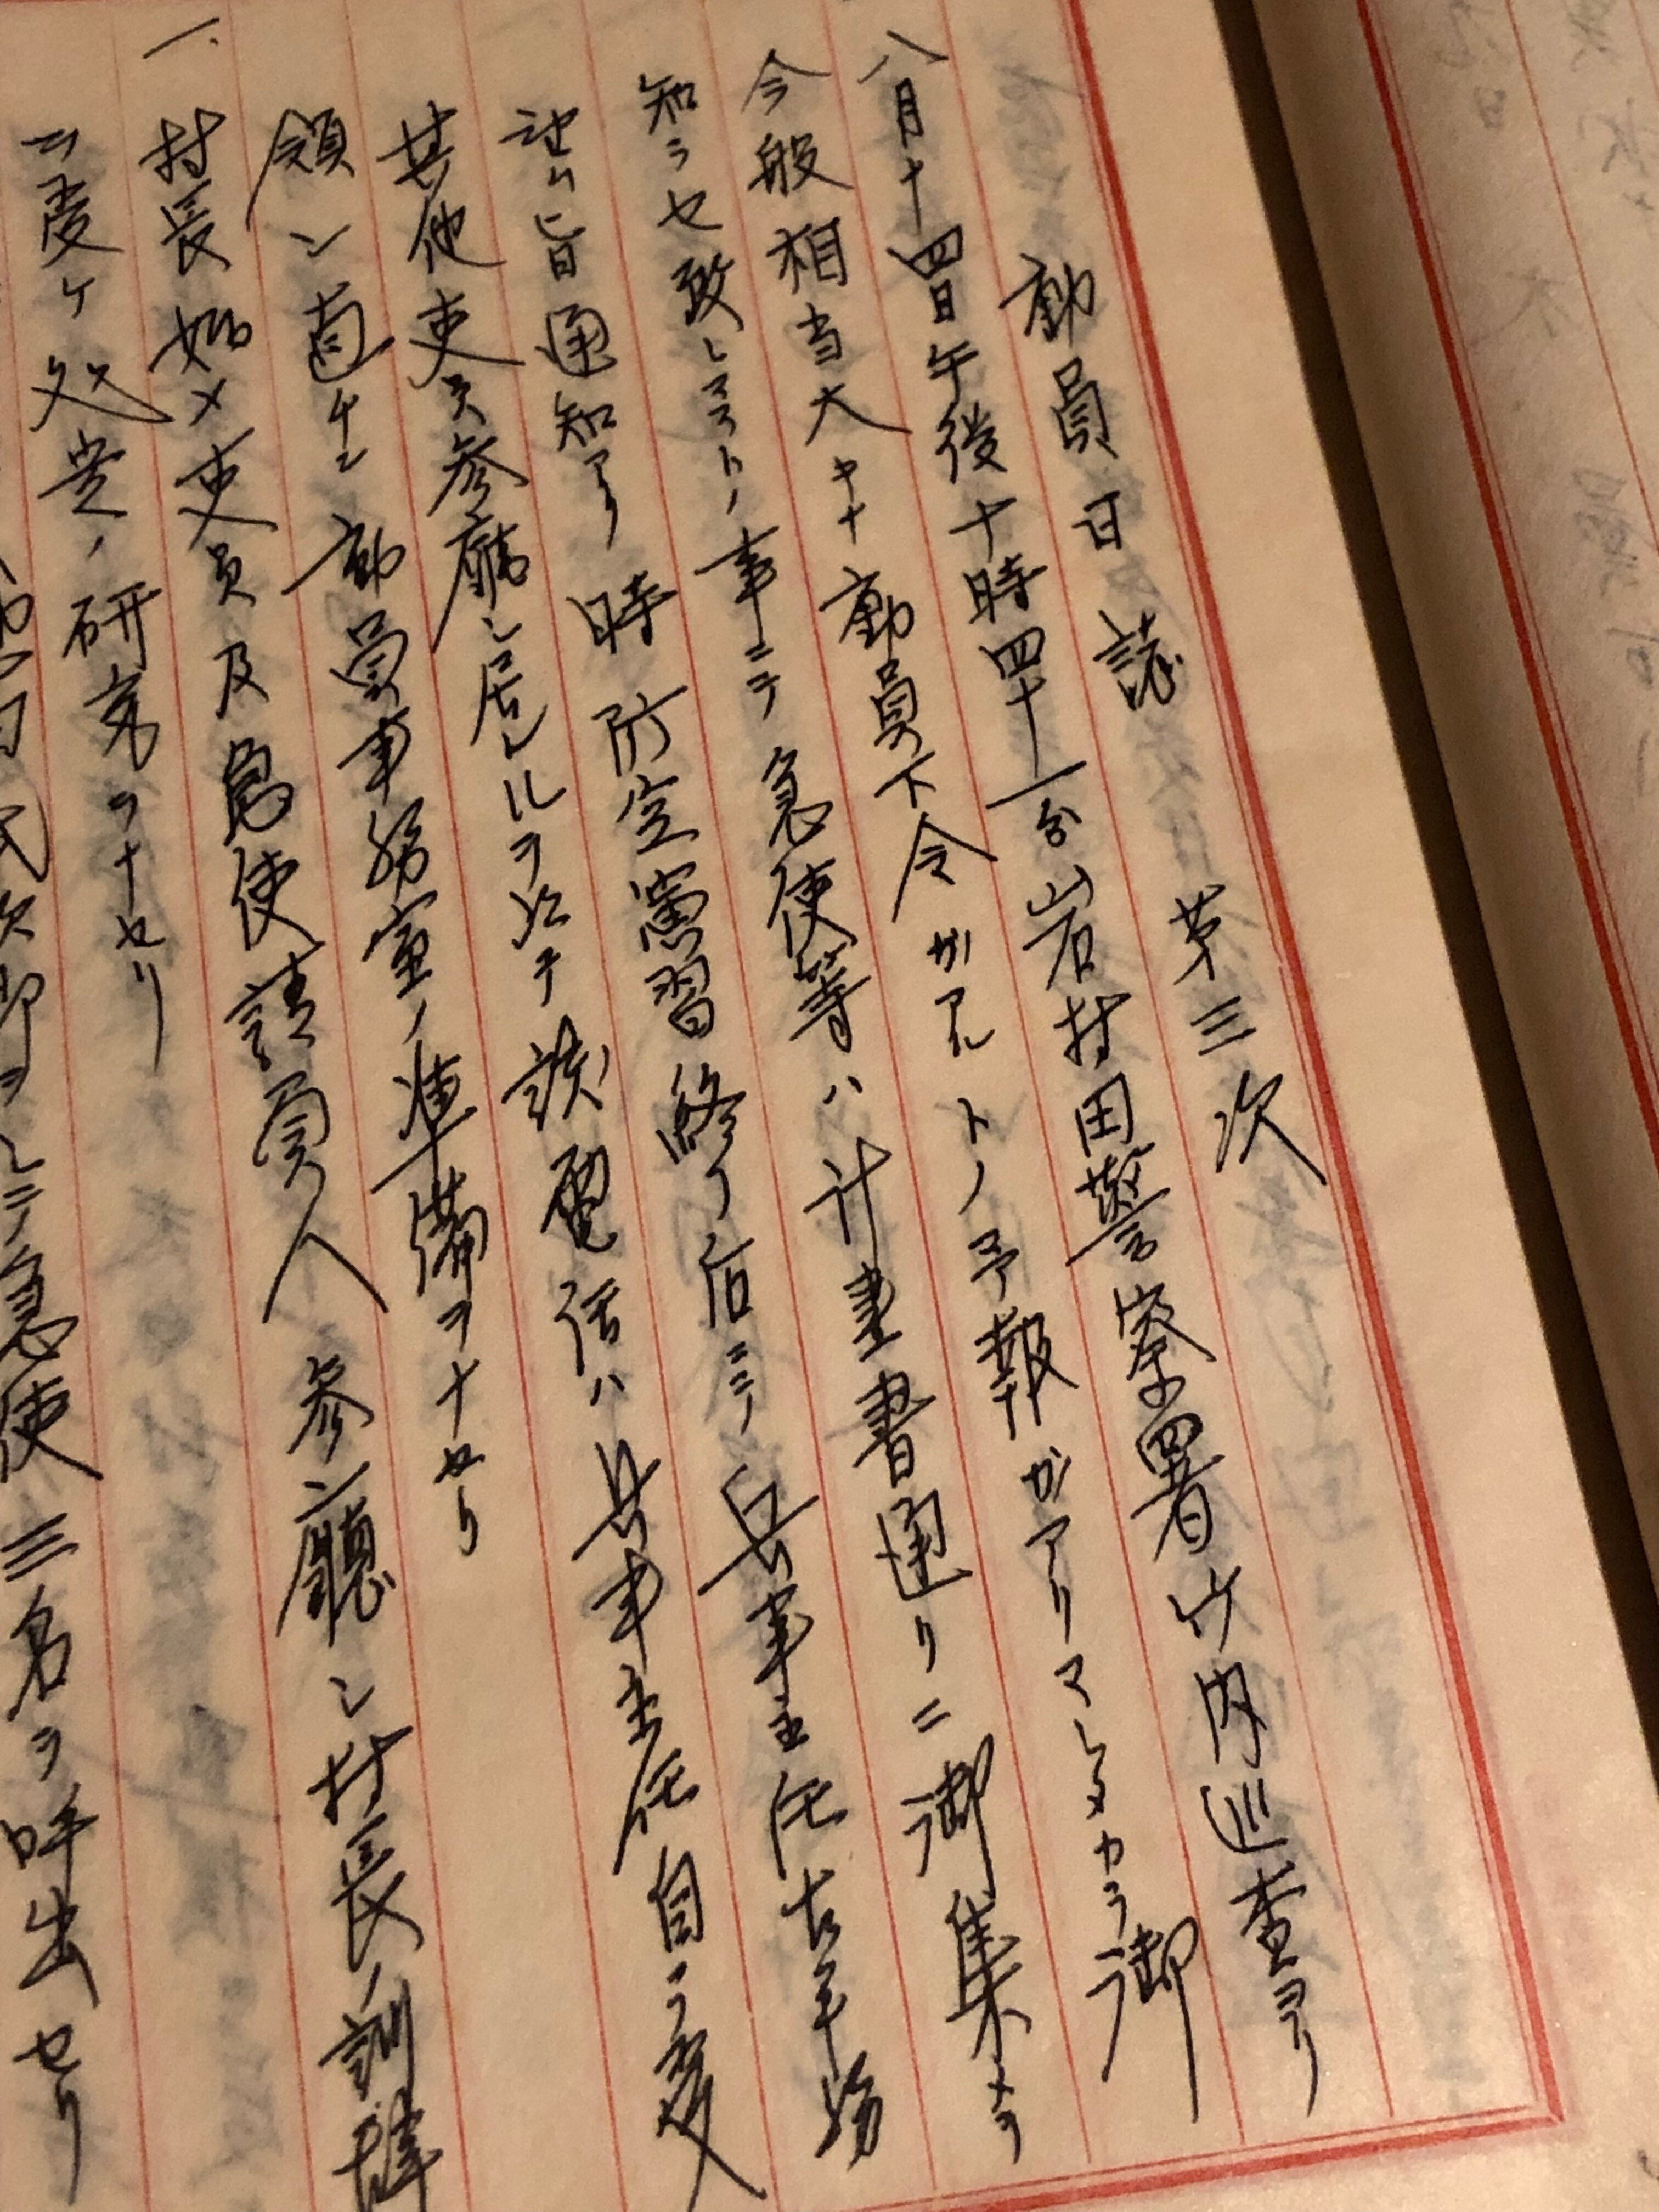 動員日誌 第三次
八月十四日午後十時四十一分岩村田警察署 内巡査ヨリ
今般相当大キナ動員下令ガアルトノ予報ガアリマシタカラ御
知ラセ致シマストノ事ニテ急使等ハ計画書通リニ御集メヲ
旨通知アリ時防空演習終リ后ニテ兵事主任
其他吏員参廳シ居レルヲ以テ該電話ハ兵事主任自ラ受
領シ直チニ動員事務室ノ準備ヲナセリ
一、村長始メ吏員及急使請負人参廳シ村長ノ訓
ヲ受ケ ノ研究ヲナセリ
ヲシテ急使三名ヲ呼出セリ